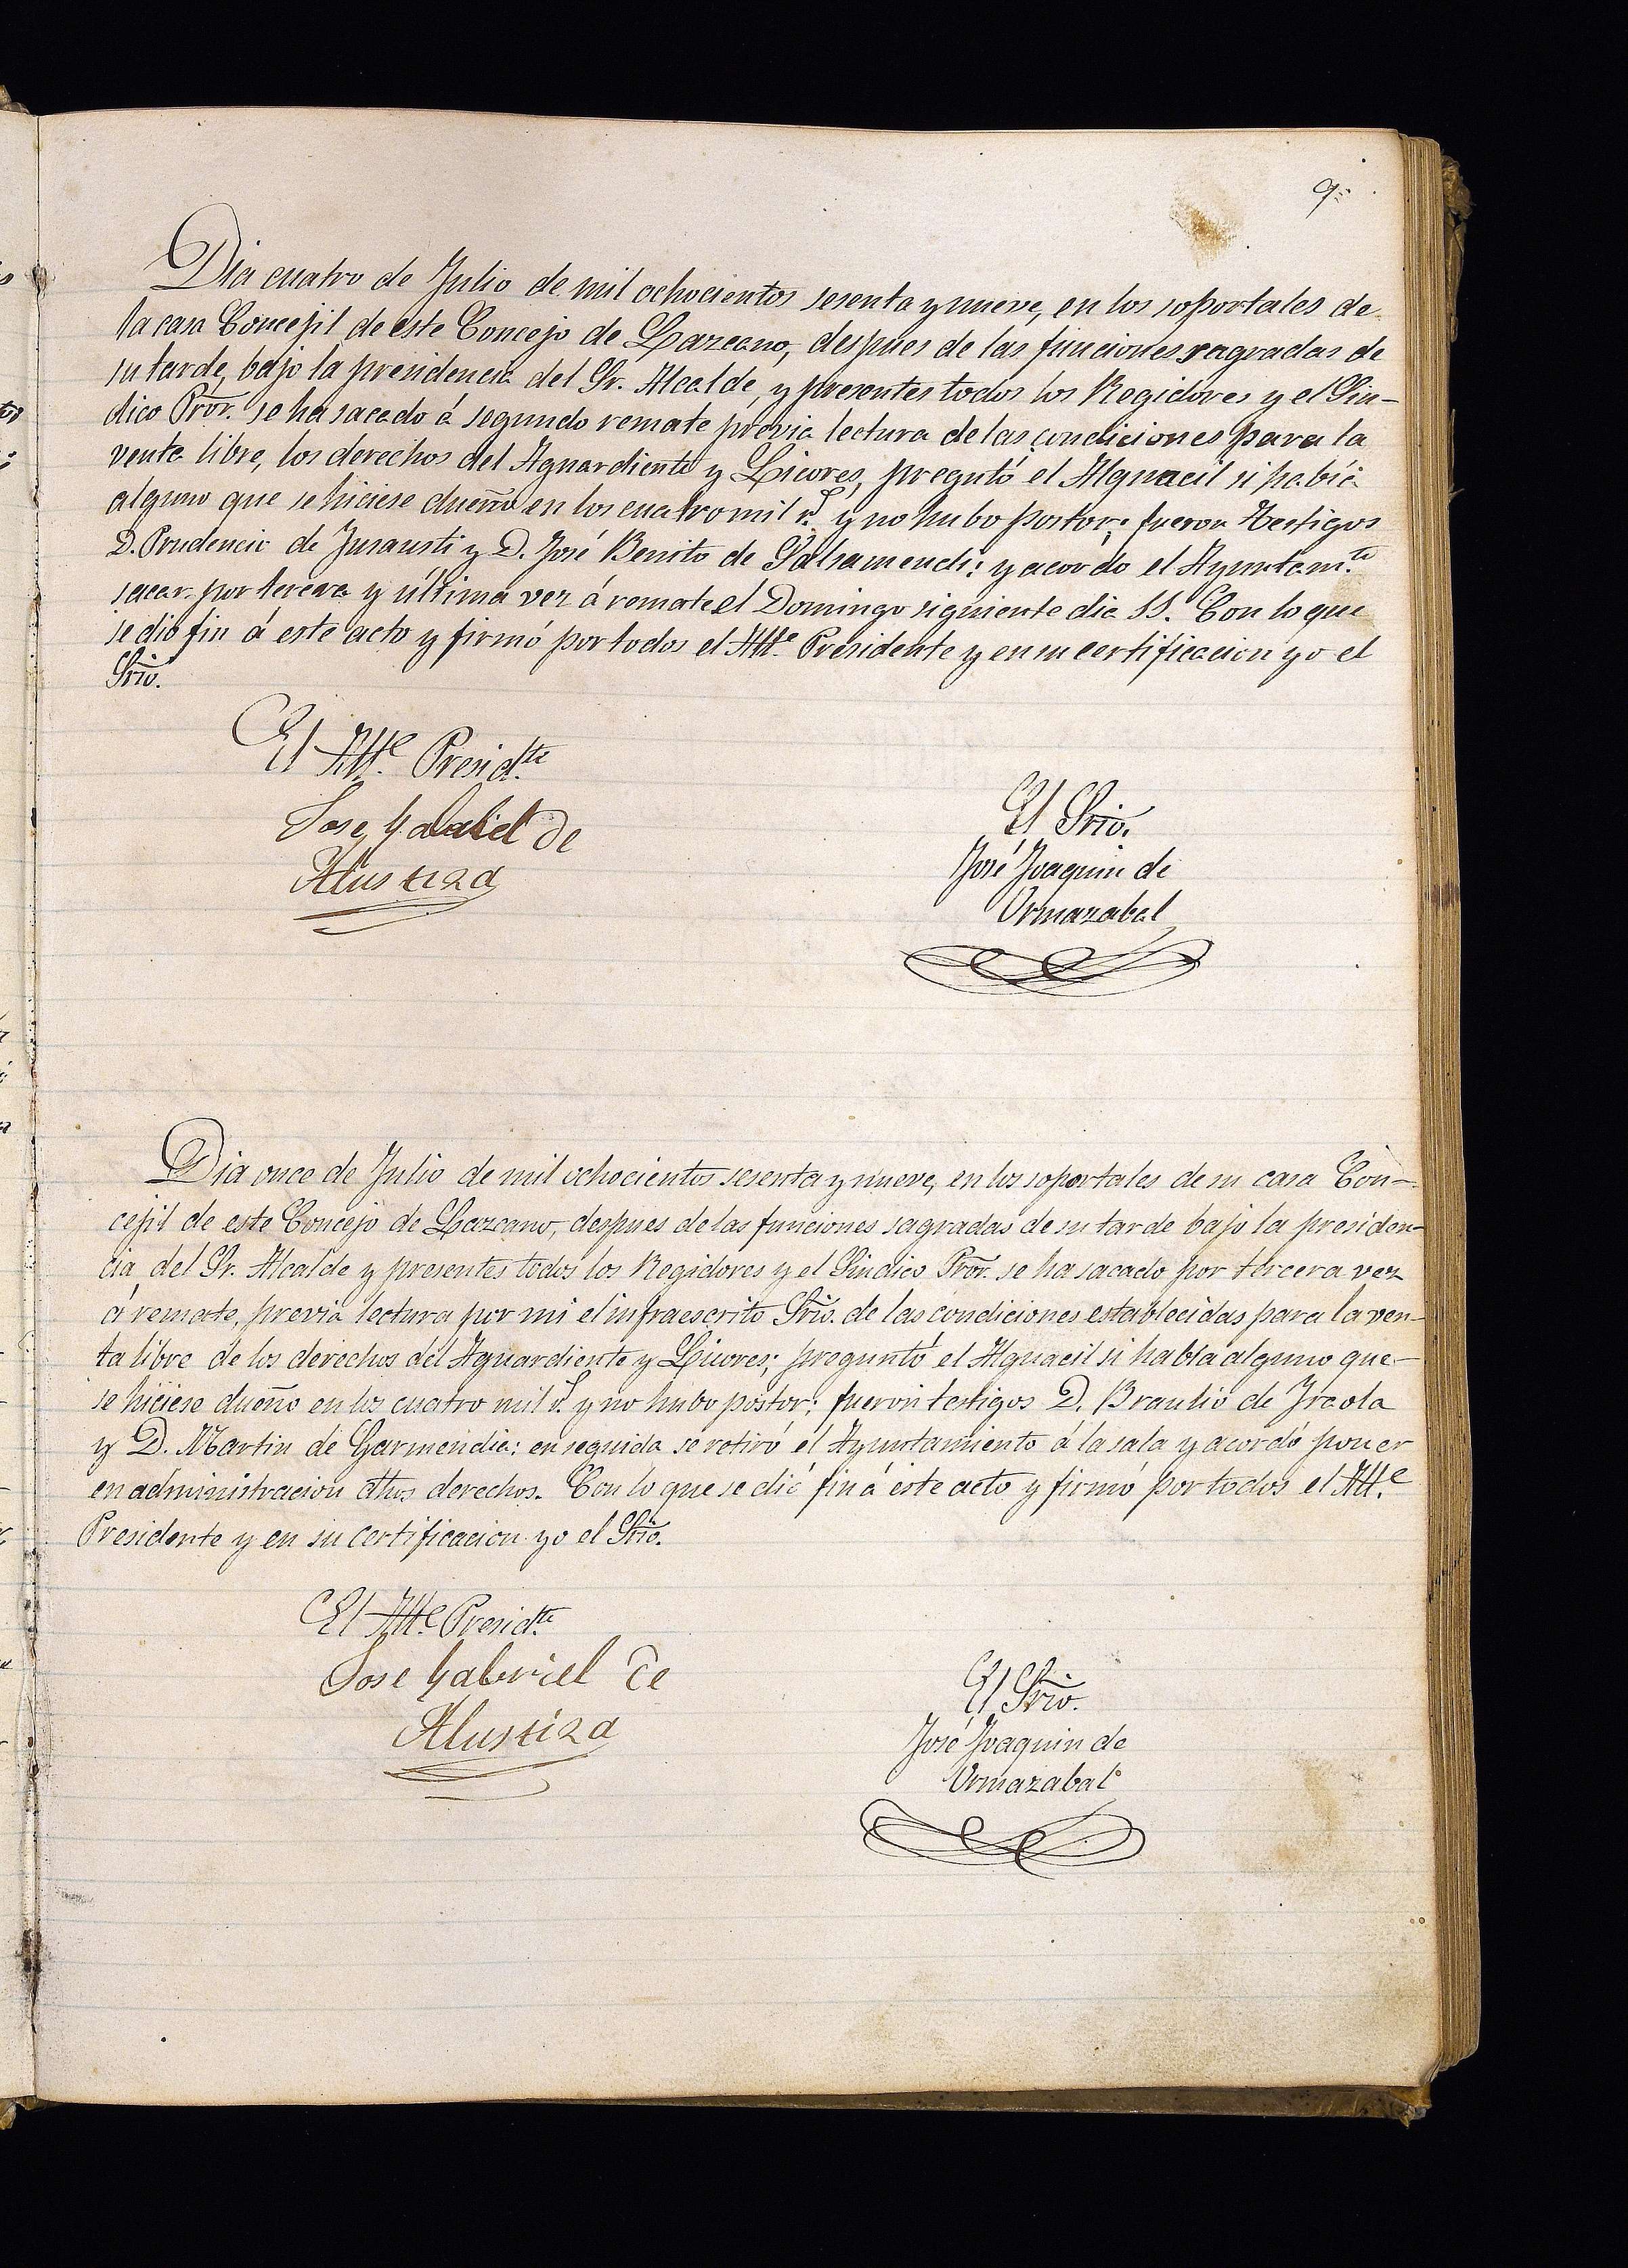 9
Dia cuatro de Julio de mil ochocientos sesenta y nueve, en los soportales de
la casa Concejil de este Concejo de Lazcano, despues de las funciones sagradas de
su tarde, bajo la presidencia del Sr. Alcalde, y presentes todos los Regidores y el Sin-
dico Pror. se ha sacado á segundo remate prévia lectura de las condiciones para la
venta libre, los derechos del Aguardiente y Licores, pregutó el Alguacil si había
alguno que se hiciese dueño en los cuatro mil rs. y no hubo postor; fueron testigos
D. Prudencio de Jurausti y D. José Benito de Galsamendi: y acordó el Ayuntam.to
sacar por tercera y última vez á remate el Domingo siguiente dia 11. Con lo que
se dió fin á este acto y firmó por todos el Alle. Presidente y en su certificacion yo el
Srio.
El Alle. Presid.te
Jose Gabriel de
Alustiza
El Srio.
José Joaquin de
Ormazabal
Dia once de Julio de mil ochocientos sesenta y nueve, en los soportales de su casa Con-
cejil de este Concejo de Lazcano, despues de las funciones sagradas de su tarde bajo la presiden-
cia del Sr. Alcalde y presentes todos los Regidores y el Sindico Pror. se ha sacado por tercera vez
á remate, previa lectura por mi el infraescrito Srio. de las condiciones establecidas para la ven-
ta libre de los derechos del Aguardiente y Licores; preguntó el Alguacil si había alguno que
se hiciese dueño en los cuatro mil rs. y no hubo postor; fueron testigos D. Braulio de Iraola
y D. Martin de Garmendia: en seguida se retiró el Ayuntamiento á la sala y acordó poner
en administracion dhos derechos. Con lo que se dió fin á este acto y firmó por todos el Alle.
Presidente y en su certificacion yo el Srio.
El Alle. Presid.te
Jose Gabriel de
Alustiza
El Srio.
José Joaquin de
Ormazabal